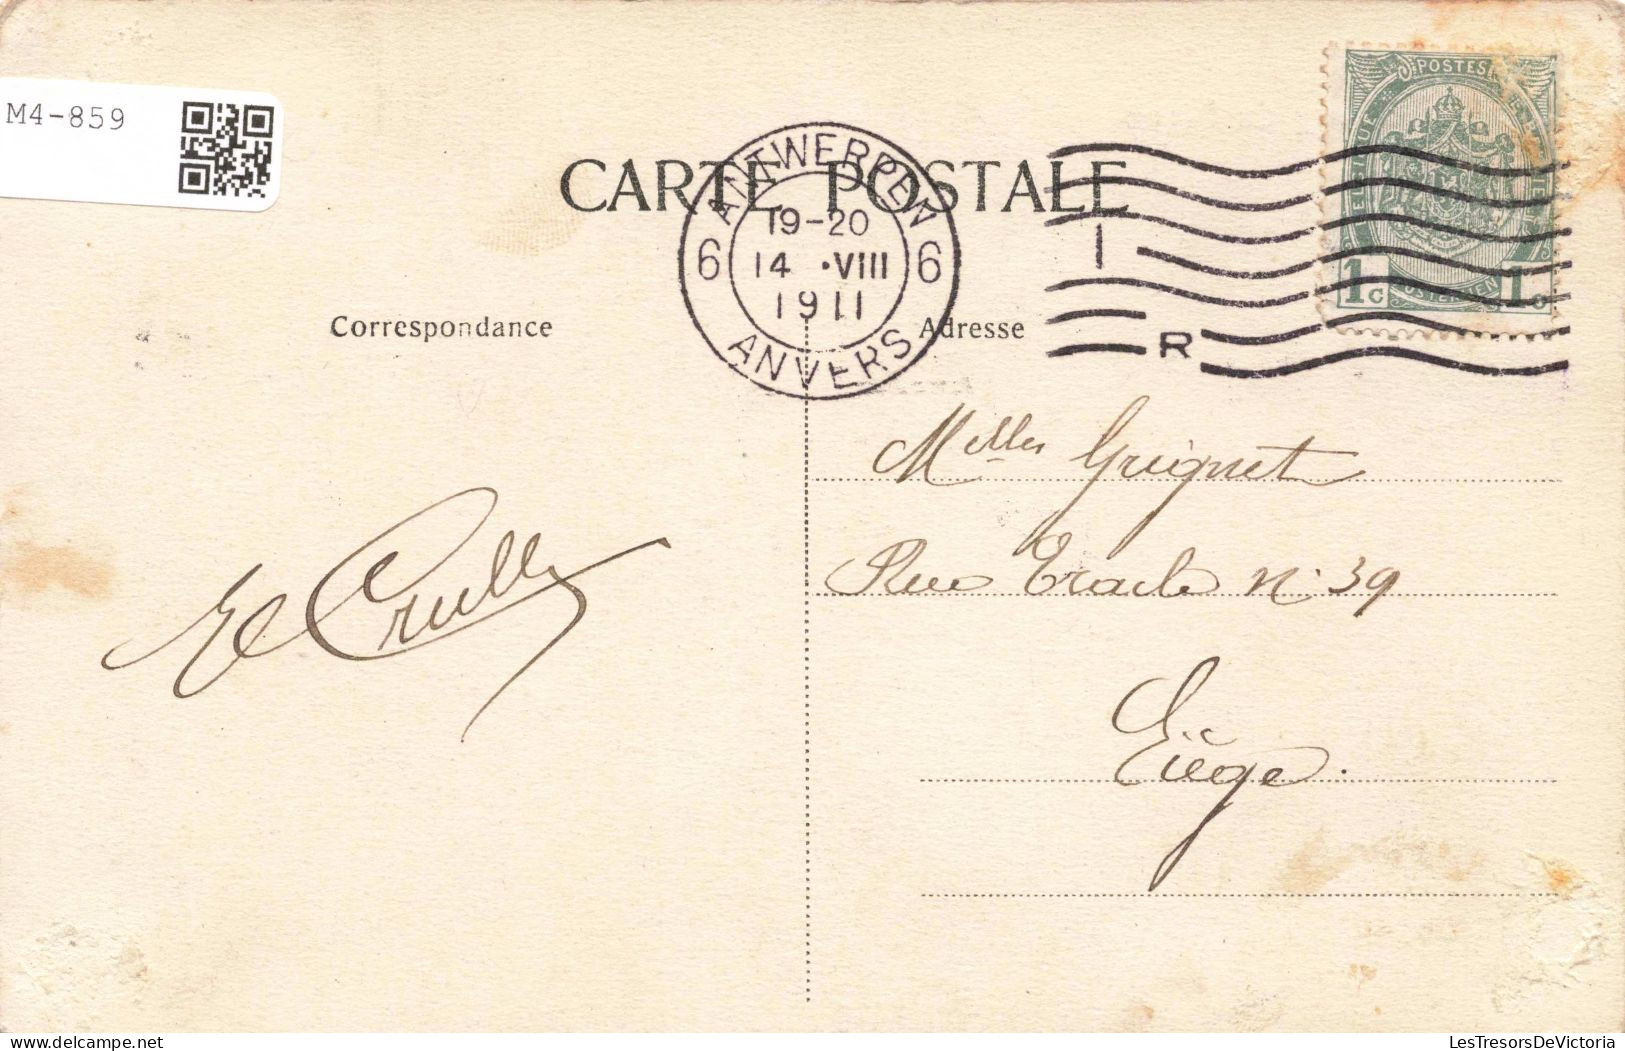 M4-859
CARTE POSTALE
ANTWERPEN
6 19-20 6
14 •VIII
1911
ANVERS
I
R
POSTES
1c 1c
Correspondance
Adresse
Melles Grignet
Rue n: 39
Liège.
LesTresorsDeVictoria